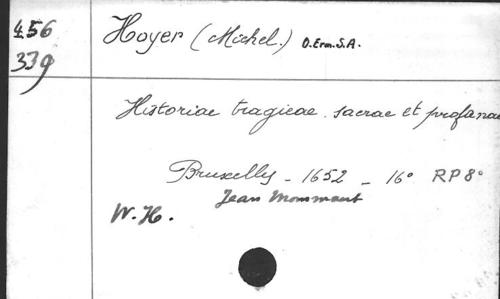 456 Hoyer (Michel.) O.Erm.S.A.
339
Historiae tragicae. sacrae et profanae
Bruxellis - 1652 - 16° RP 8°
Jean Mommaert
W. H.